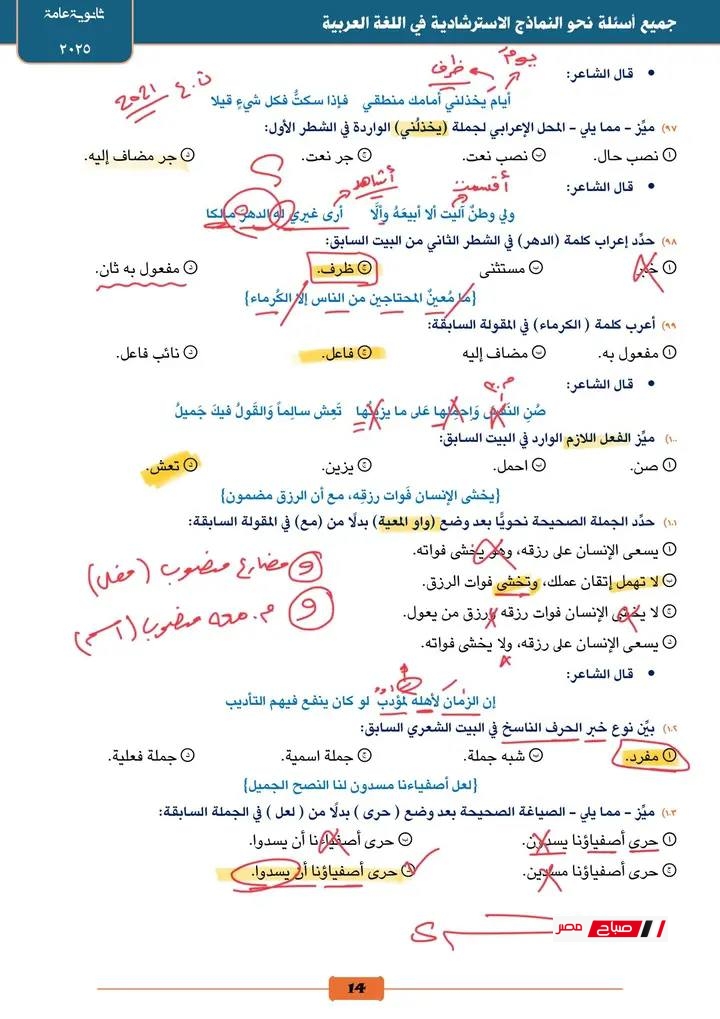 جميع أسئلة نحو النماذج الاسترشادية في اللغة العربية
ثانوية عامة
٢٠٢٥
• قال الشاعر:
يوم
ظرف
ث.ع 2021
أيام يخذلني أمامك منطقي فإذا سكتُّ فكل شيءٍ قيلا
٩٧) ميِّز - مما يلي - المحل الإعرابي لجملة (يخذلُني) الواردة في الشطر الأول:
أ نصب حال. ب نصب نعت. ج جر نعت. د جر مضاف إليه.
• قال الشاعر:
أقسمت
أشاهد
ولي وطنٌ آليت ألا أبيعَهُ وألَّا أرى غيري له الدهرَ مالكا
٩٨) حدِّد إعراب كلمة (الدهر) في الشطر الثاني من البيت السابق:
أ خبر ب مستثنى ج ظرف. د مفعول به ثان.
{ما مُعينٌ المحتاجين من الناس إلا الكُرماء}
٩٩) أعرب كلمة ( الكرماء) في المقولة السابقة:
أ مفعول به. ب مضاف إليه ج فاعل. د نائب فاعل.
• قال الشاعر:
م.به
صُنِ النَفسَ وَاِحمِلها عَلى ما يزينُها تَعِش سالِماً وَالقَولُ فيكَ جَميلُ
١٠٠) ميِّز الفعل اللازم الوارد في البيت السابق:
أ صن. ب احمل. ج يزين. د تعش.
{يخشى الإنسان فَوات رزقِه، مع أن الرزق مضمون}
١٠١) حدِّد الجملة الصحيحة نحويًّا بعد وضع (واو المعية) بدلًا من (مع) في المقولة السابقة:
أ يسعى الإنسان على رزقه، وهو يخشى فواته.
ب لا تهمل إتقان عملك، وتخشى فوات الرزق.
ج لا يخشى الإنسان فوات رزقه ورزق من يعول.
د يسعى الإنسان على رزقه، ولا يخشى فواته.
و مضارع منصوب (فعل)
و م. معه منصوب (اسم)
• قال الشاعر:
إن الزمانَ لأهله لمؤدبٌ لو كان ينفع فيهم التأديب
١٠٢) بيِّن نوع خبر الحرف الناسخ في البيت الشعري السابق:
أ مفرد. ب شبه جملة. ج جملة اسمية. د جملة فعلية.
{لعل أصفياءنا مسدون لنا النصح الجميل}
١٠٣) ميِّز - مما يلي - الصياغة الصحيحة بعد وضع ( حرى ) بدلًا من ( لعل ) في الجملة السابقة:
أ حرى أصفياؤنا يسدون. ب حرى أصفياءنا أن يسدوا.
ج حرى أصفياؤنا مسدين. د حرى أصفياؤنا أن يسدوا.
صباح مصر
14